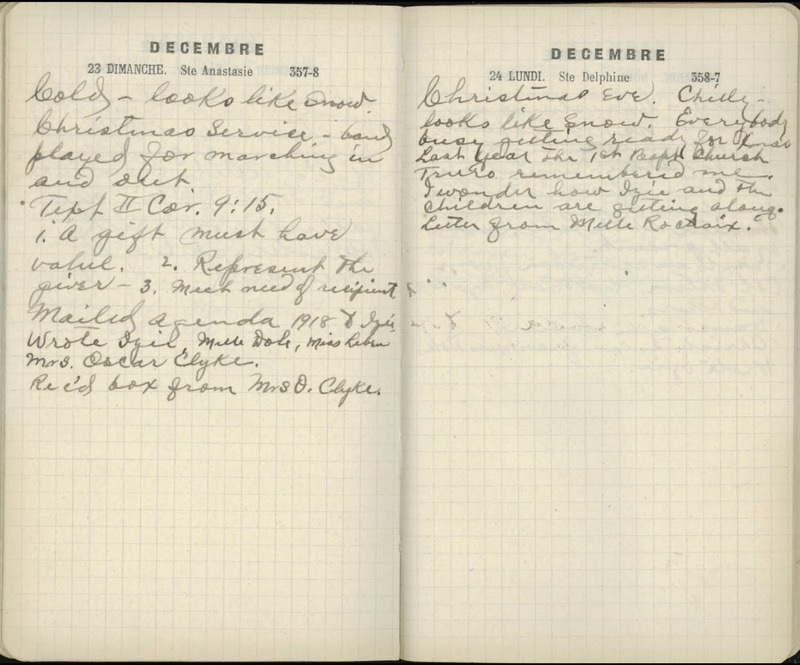 DECEMBRE
23 DIMANCHE. Ste Anastasie 357-8
Cold – looks like snow.
Christmas Service – band
played for marching in
and out.
Text II Cor. 9:15.
1. A gift must have
value. 2. Represent the
giver – 3. Meet need of recipient
Mailed agenda 1918 to Izie
Wrote Izie, Melle Dole, Miss
Mrs. Oscar Clyke.
Rec'd box from Mrs O. Clyke.
DECEMBRE
24 LUNDI. Ste Delphine 358-7
Christmas Eve. Chilly –
looks like snow. Everybody
busy getting ready for Xmas
Last year the 1st Bapt Church
Truro remembered me.
I wonder how Izie and the
children are getting along.
Letter from Melle Rochaix.